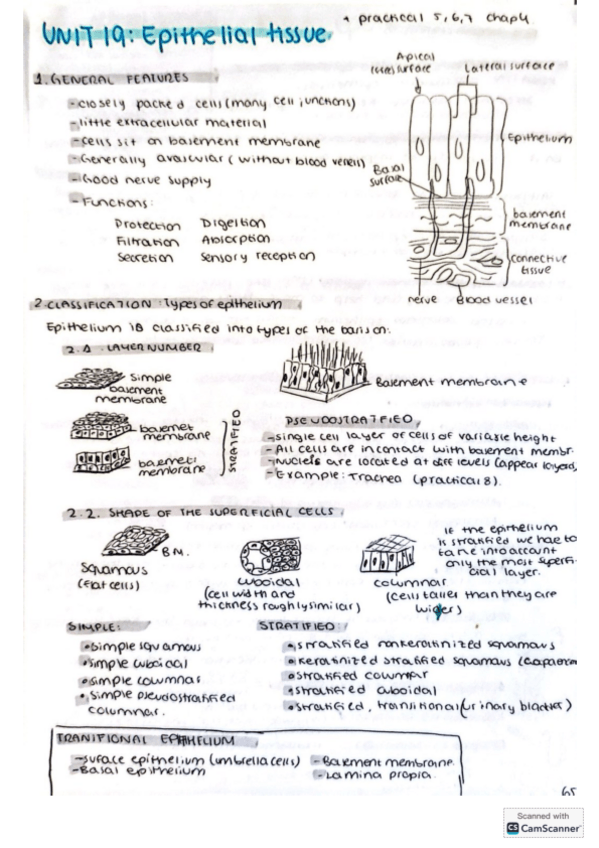 + practical 5,6,7 chap4.
UNIT 19: Epithelial tissue.
1. GENERAL FEATURES
- closely packed cells (many cell junctions)
- little extracellular material
- cells sit on basement membrane
- Generally avascular (without blood vessels)
- Good nerve supply
- Functions:
Protection Digestion
Filtration Absorption
Secretion Sensory reception
Apical
surface
Lateral surface
Epithelium
Basal
surface
basement
membrane
connective
tissue
nerve Blood vessel
2. CLASSIFICATION: Types of epithelium
Epithelium is classified into types of the basison:
2.1. LAYER NUMBER
simple
basement
membrane
basemet
membrane
basemet
membrane
STRATIFIED
Basement membrane
PSEUDOSTRATIFIED
- single cell layer of cells of variable height
- All cells are in contact with basement membr.
- Nucleis are located at diff levels (appear layered)
- Example: Trachea (practical 8).
2.2. SHAPE OF THE SUPERFICIAL CELLS:
B.M.
Squamous
(flat cells)
cuboidal
(cell width and
thickness roughly similar)
columnar
(cells taller than they are
wider)
If the epithelium
is stratified we have to
take into account
only the most superfi-
cial layer.
SIMPLE:
• Simple squamous
• simple cuboidal
• simple columnar
• simple pseudostratified
columnar.
STRATIFIED:
• stratified nonkeratinized squamous
• keratinized stratified squamous
• stratified columnar
• stratified cuboidal
• stratified, transitional (urinary bladder)
TRANSITIONAL EPITHELIUM
- surface epithelium (umbrella cells)
- Basal epithelium
- Basement membrane.
- Lamina propia.
65
Scanned with
CS CamScanner